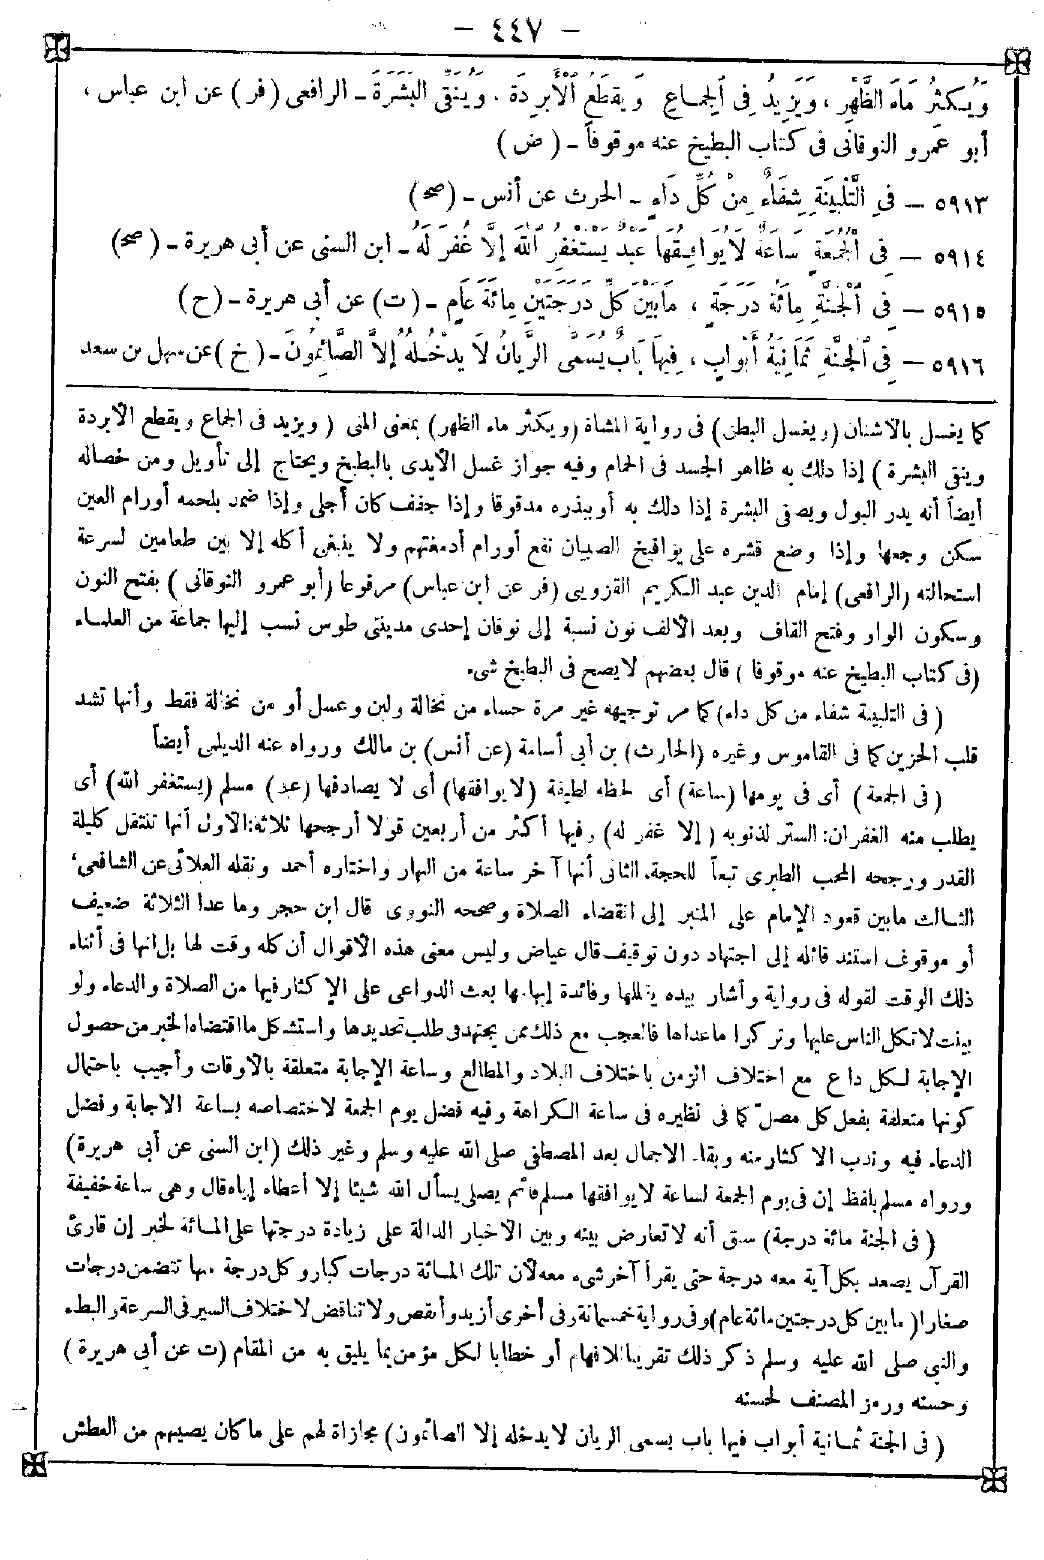 - ٤٤٧ -
وَيُكثِرُ مَاءَ الظَّهْرِ ، وَيَزِيدُ فِى الْجِمَاعِ وَيَقطَعُ الْأَبْرِدَةَ . وَيُنَقِّى الْبَشَرَةَ - الرافعى ( فر ) عن ابن عباس ،
أبو عمرو النوقانى فى كتاب البطيخ عنه موقوفاً - ( ض )
٥٩١٣ - فِى التَّلْبِينَةِ شِفَاءٌ مِنْ كُلِّ دَاءٍ - الحرث عن أنس - ( صح )
٥٩١٤ - فِى الْجُمُعَةِ سَاعَةٌ لَا يُوَافِقُهَا عَبْدٌ يَسْتَغْفِرُ اللهَ إلَّا غُفِرَ لَهُ - ابن السنى عن أبى هريرة - ( صح )
٥٩١٥ - فِى الْجَنَّةِ مِائَةُ دَرَجَةٍ ، مَا بَيْنَ كُلِّ دَرَجَتَيْنِ مِائَةُ عَامٍ - ( ت ) عن أبى هريرة - ( ح )
٥٩١٦ - فِى الْجَنَّةِ ثَمَانِيَةُ أَبْوَابٍ ، فِيهَا بَابٌ يُسَمَّى الرَّيَّانُ لَا يَدْخُلُهُ إلَّا الصَّائِمُونَ - ( خ ) عن سهل بن سعد
كما يغسل بالاشنان (ويغسل البطن) فى رواية المشاة (ويكثر ماء الظهر) بمعنى المنى ( ويزيد فى الجماع ويقطع الأبردة
وينقى البشرة ) إذا دلك به ظاهر الجسد فى الحمام وفيه جواز غسل الأيدى بالبطيخ ويحتاج إلى تأويل ومن خصاله
أيضاً أنه يدر البول ويصفى البشرة إذا دلك به أو ببذره مدقوقا وإذا جفف كان أجلى وإذا ضمد بلحمه أورام العين
سكن وجعها وإذا وضع قشره على يوافيخ الصبيان نفع أورام أدمغتهم ولا ينبغى أكله إلا بين طعامين لسرعة
استحالته (الرافعى) إمام الدين عبد الكريم القزوينى (فر عن ابن عباس) مرفوعا (أبو عمرو النوقانى ) بفتح النون
وسكون الواو وفتح القاف وبعد الألف نون نسبة إلى نوقان إحدى مدينتى طوس نسب إليها جماعة من العلماء
(فى كتاب البطيخ عنه موقوفا ) قال بعضهم لا يصح فى البطيخ شىء
( فى التلبينة شفاء من كل داء) كما مر توجيهه غير مرة حساء من نخالة ولبن وعسل أو من نخالة فقط وأنها تشد
قلب الحزين كما فى القاموس وغيره (الحارث) بن أبى أسامة (عن أنس) بن مالك ورواه عنه الديلمى أيضاً
( فى الجمعة ) أى فى يومها (ساعة) أى لحظة لطيفة (لا يوافقها) أى لا يصادفها (عبد) مسلم (يستغفر الله) أى
يطلب منه الغفران: الستر لذنوبه ( إلا غفر له ) وفيها أكثر من أربعين قولا أرجحها ثلاثة: الأول أنها تنتقل كليلة
القدر ورجحه المحب الطبرى تبعاً للحجة، الثانى أنها آخر ساعة من النهار واختاره أحمد ونقله العلائى عن الشافعى،
الثالث ما بين قعود الإمام على المنبر إلى انقضاء الصلاة وصححه النووى قال ابن حجر وما عدا الثلاثة ضعيف
أو موقوف استند قائله إلى اجتهاد دون توقيف قال عياض وليس معنى هذه الاقوال أن كله وقت لها بل انها فى أثناء
ذلك الوقت لقوله فى رواية وأشار بيده يقللها وفائدة إبهامها بعث الدواعى على الإكثار فيها من الصلاة والدعاء ولو
بينت لاتكل الناس عليها وتركوا ما عداها فالعجب مع ذلك ممن يجتهد فى طلب تحديدها واستشكل ما اقتضاه الخبر من حصول
الإجابة لكل داع مع اختلاف الزمن باختلاف البلاد والمطالع وساعة الإجابة متعلقة بالأوقات وأجيب باحتمال
كونها متعلقة بفعل كل مصلّ كما فى نظيره فى ساعة الكراهة وفيه فضل يوم الجمعة لاختصاصه بساعة الاجابة وفضل
الدعاء فيه وندب الاكثار منه وبقاء الاجمال بعد المصطفى صلى الله عليه وسلم وغير ذلك (ابن السنى عن أبى هريرة)
ورواه مسلم بلفظ إن فى يوم الجمعة لساعة لا يوافقها مسلم قائم يصلى يسأل الله شيئا إلا أعطاه إياه قال وهى ساعة خفيفة
( فى الجنة مائة درجة) سبق أنه لا تعارض بينه وبين الأخبار الدالة على زيادة درجتها على المائة لخبر إن قارئ
القرآن يصعد بكل آية معه درجة حتى يقرأ آخر شىء معه لأن تلك المائة درجات كبار وكل درجة منها تتضمن درجات
صغارا ( ما بين كل درجتين مائة عام) وفى رواية خمسمائة وفى أخرى أزيد وأنقص ولا تناقض لاختلاف السير فى السرعة والبطء
والنبى صلى الله عليه وسلم ذكر ذلك تقريبا للافهام أو خطابا لكل مؤمن بما يليق به من المقام (ت عن أبى هريرة )
وحسنه ورمز المصنف لحسنه
( فى الجنة ثمانية أبواب فيها باب يسمى الريان لا يدخله إلا الصائمون) مجازاة لهم على ما كان يصيبهم من العطش